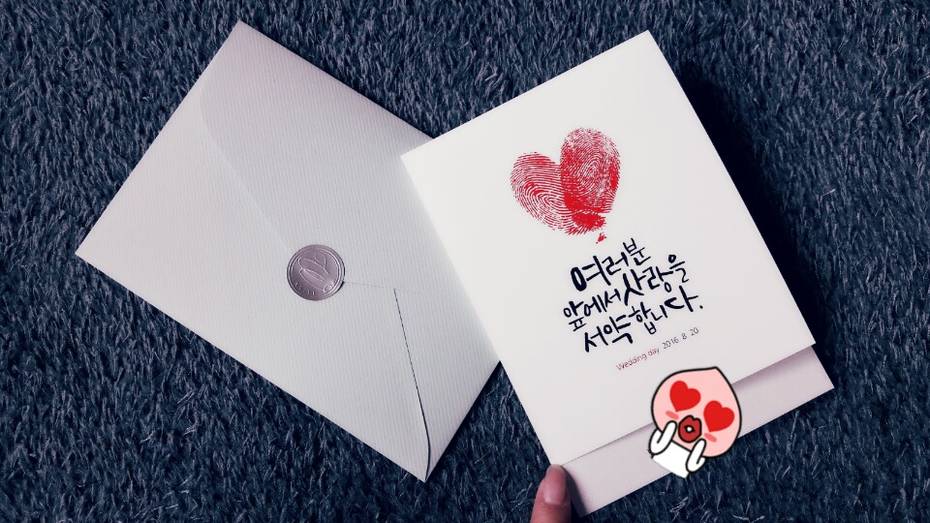 여러분
앞에서 사랑을
서약합니다.
Wedding day 2016. 8. 20